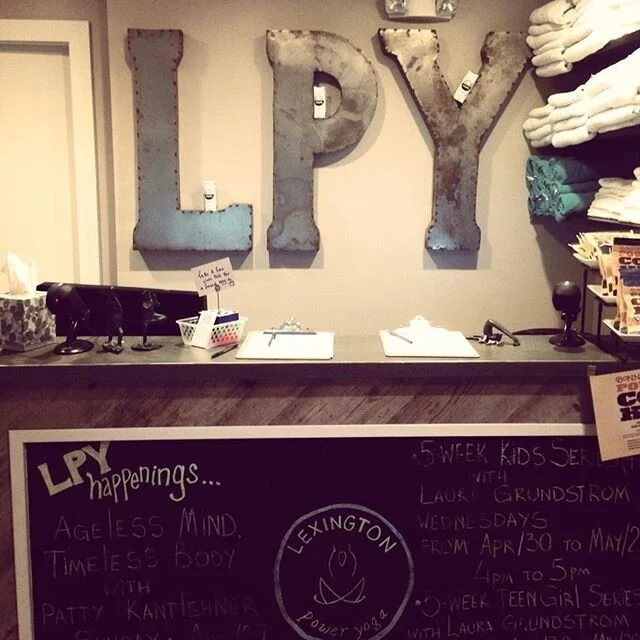 LPY
LPY
happenings...
AGELESS MIND.
TIMELESS BODY
WITH
PATTY KANTLEHNER
LEXINGTON
power yoga
•5 WEEK KIDS SER
WITH
LAURA GRUNDSTROM
WEDNESDAYS
FROM APR/30 TO MAY/2
4PM TO 5PM
•5-WEEK TEEN GIRL SERIES
WITH LAURA GRUNDSTROM